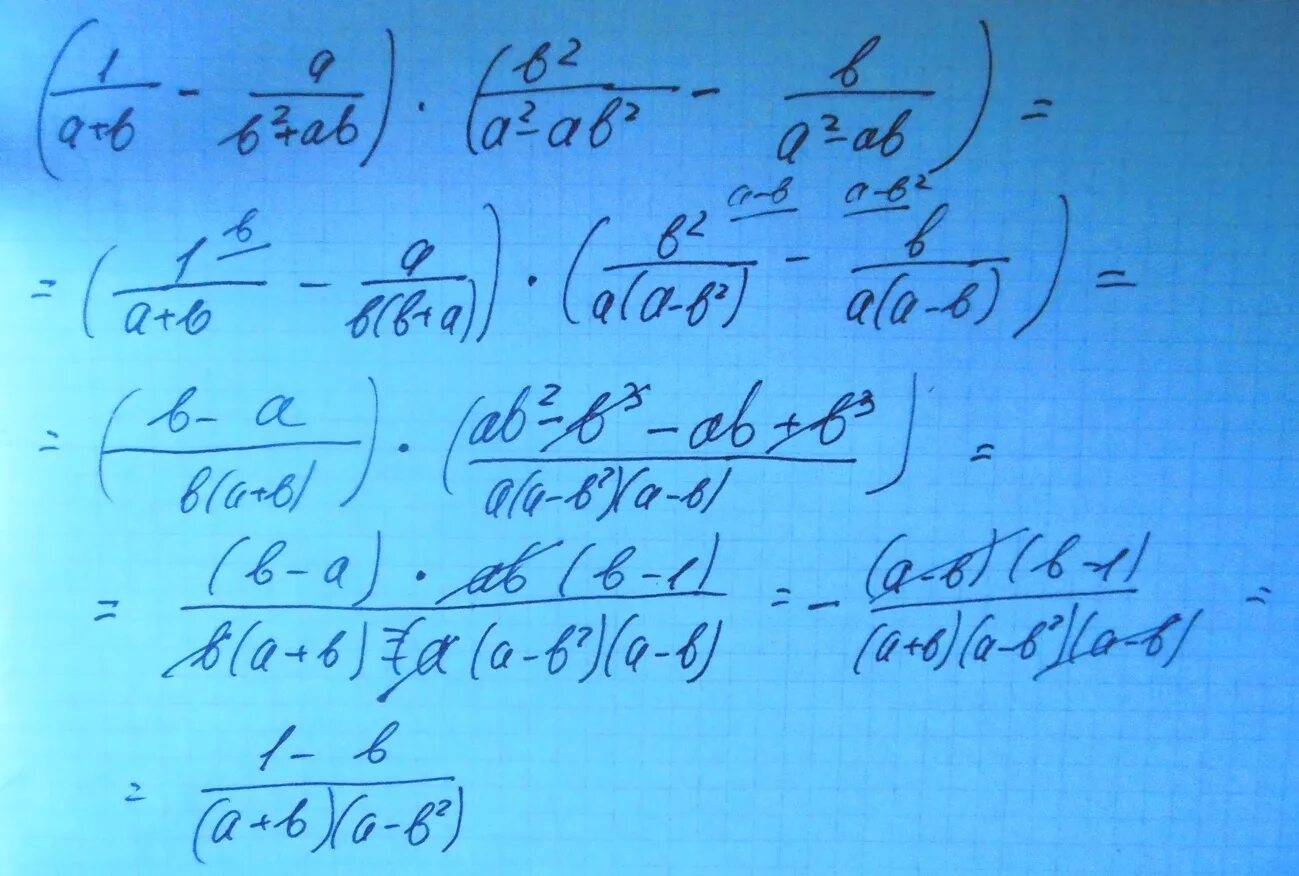 (1/(a+b) - a/(b²+ab)) · (b²/(a²-ab²) - b/(a²-ab)) =
= (1^b/(a+b) - a/(b(b+a))) · (b²^(a-b)/(a(a-b²)) - b^(a-b²)/(a(a-b))) =
= ((b-a)/(b(a+b))) · ((ab²-b³-ab+b³)/(a(a-b²)(a-b))) =
= ((b-a)·ab(b-1))/(b(a+b)·a(a-b²)(a-b)) = - ((a-b)(b-1))/((a+b)(a-b²)(a-b)) =
= (1-b)/((a+b)(a-b²))